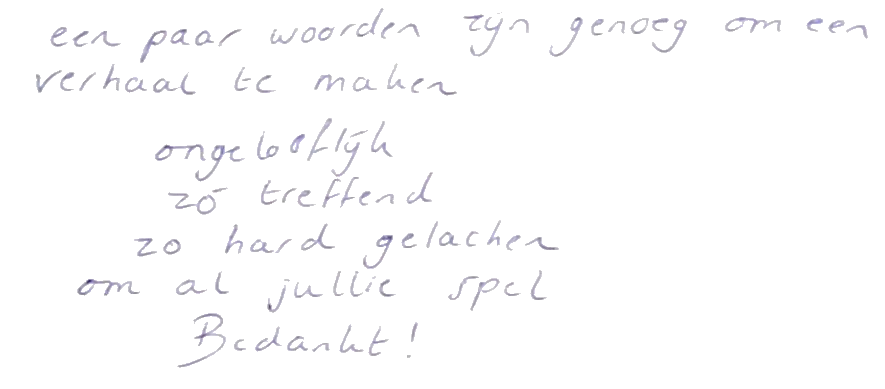 een paar woorden zijn genoeg om een
verhaal te maken
ongelooflijk
zó treffend
zo hard gelachen
om al jullie spel
Bedankt!